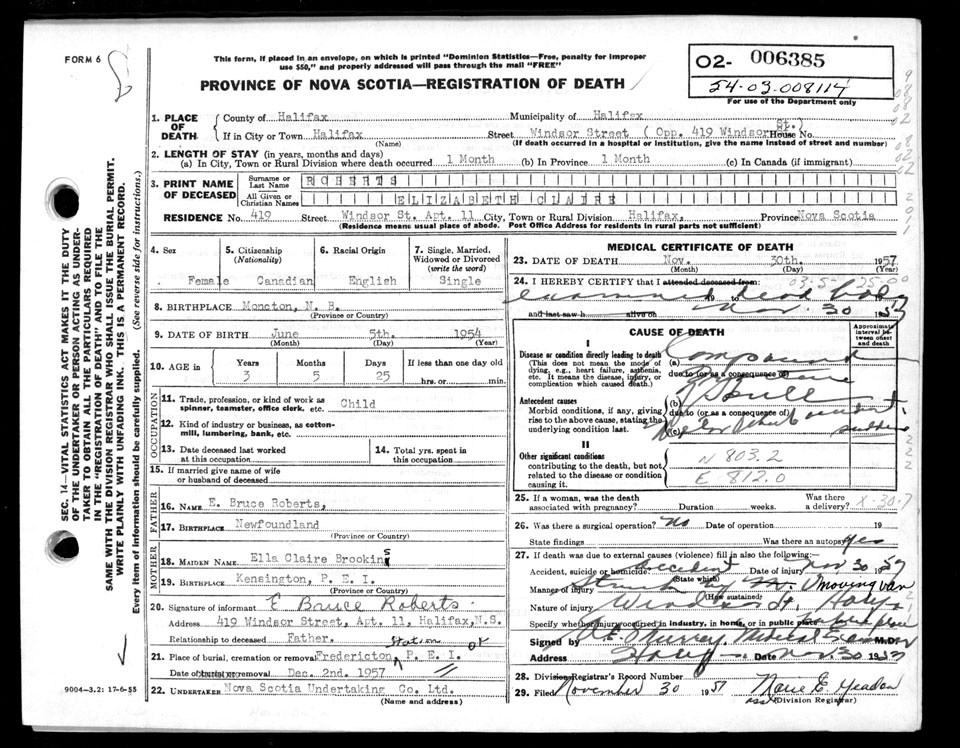 FORM 6
This form, if placed in an envelope, on which is printed "Dominion Statistics—Free, penalty for improper
use $50," and properly addressed will pass through the mail "FREE"
PROVINCE OF NOVA SCOTIA—REGISTRATION OF DEATH
02- 006385
54-03-008114
For use of the Department only
1. PLACE OF DEATH
County of Halifax Municipality of Halifax
If in City or Town Halifax Street Windsor Street ( Opp. 419 Windsor St.) House No.
(Name) (If death occurred in a hospital or institution, give the name instead of street and number)
2. LENGTH OF STAY (in years, months and days)
(a) In City, Town or Rural Division where death occurred 1 Month (b) In Province 1 Month (c) In Canada (if immigrant)
3. PRINT NAME OF DECEASED
Surname or Last Name ROBERTS
All Given or Christian Names ELIZABETH CLAIRE
RESIDENCE No. 419 Street Windsor St. Apt. 11 City, Town or Rural Division Halifax, Province Nova Scotia
(Residence means usual place of abode. Post Office Address for residents in rural parts not sufficient)
4. Sex Female
5. Citizenship (Nationality) Canadian
6. Racial Origin English
7. Single, Married, Widowed or Divorced (write the word) Single
8. BIRTHPLACE Moncton, N. B.
(Province or Country)
9. DATE OF BIRTH June 5th. 1954
(Month) (Day) (Year)
10. AGE in Years 3 Months 5 Days 25 If less than one day old hrs. or min.
OCCUPATION
11. Trade, profession, or kind of work as spinner, teamster, office clerk, etc. Child
12. Kind of industry or business, as cotton-mill, lumbering, bank, etc.
13. Date deceased last worked at this occupation
14. Total yrs. spent in this occupation
15. If married give name of wife or husband of deceased
FATHER
16. NAME E. Bruce Roberts,
17. BIRTHPLACE Newfoundland
(Province or Country)
MOTHER
18. MAIDEN NAME Ella Claire Brookins
19. BIRTHPLACE Kensington, P. E. I.
(Province or Country)
20. Signature of informant E Bruce Roberts
Address 419 Windsor Street, Apt. 11, Halifax, N.S.
Relationship to deceased Father.
Station
21. Place of burial, cremation or removal Fredericton, P. E. I.
Date of burial or removal Dec. 2nd. 1957
22. UNDERTAKER Nova Scotia Undertaking Co. Ltd.
(Name and address)
MEDICAL CERTIFICATE OF DEATH
23. DATE OF DEATH Nov. 30th. 1957
(Month) (Day) (Year)
24. I HEREBY CERTIFY that I attended deceased from:
examined dead body
and last saw h alive on Nov. 30 1957
CAUSE OF DEATH
Approximate interval between onset and death
I
Disease or condition directly leading to death (a) Compound
(This does not mean the mode of dying, e.g., heart failure, asthenia, etc. It means the disease, injury, or complication which caused death.)
due to (or as a consequence of)
Antecedent causes (b) Skull
Morbid conditions, if any, giving rise to the above cause, stating the underlying condition last.
due to (or as a consequence of)
(c)
II
Other significant conditions contributing to the death, but not related to the disease or condition causing it.
N 803.2
E 812.0
25. If a woman, was the death associated with pregnancy? Duration weeks. Was there a delivery? X-30-7
26. Was there a surgical operation? No Date of operation 19
State findings Was there an autopsy? Yes
27. If death was due to external causes (violence) fill in also the following:
Accident, suicide or homicide? Accident Date of injury Nov 30 1957
(State which)
Manner of injury Struck by moving van
(How sustained)
Nature of injury Windsor St.
Specify whether injury occurred in industry, in home, or in public place
Signed by Murray Medical Examiner M.D.
Address Date Nov. 30 1957
28. Division Registrar's Record Number
29. Filed November 30 1957 Marie E. Yeadon
(Division Registrar)
SEC. 14—VITAL STATISTICS ACT MAKES IT THE DUTY
OF THE UNDERTAKER OR PERSON ACTING AS UNDER-
TAKER TO OBTAIN ALL THE PARTICULARS REQUIRED
IN THE "REGISTRATION OF DEATH" AND TO FILE THE
SAME WITH THE DIVISION REGISTRAR WHO SHALL ISSUE THE BURIAL PERMIT.
WRITE PLAINLY WITH UNFADING INK. THIS IS A PERMANENT RECORD.
Every item of information should be carefully supplied. (See reverse side for instructions.)
9004-3.2: 17-6-55